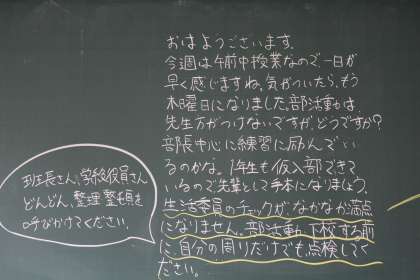 おはようございます.
今週は午前中授業なので一日が
早く感じますね.気がついたら、もう
木曜日になりました.部活動は
先生方がつけないですが、どうですか?
部長中心に練習に励んでい
るのかな。1年生も仮入部できて
いるので先輩として手本になりましょう.
生活委員のチェックが、なかなか満点
になりません.部活動、下校する前
に、自分の周りだけでも点検してく
ださい。
班長さん、学級役員さん
どんどん、整理整頓を
呼びかけてください.